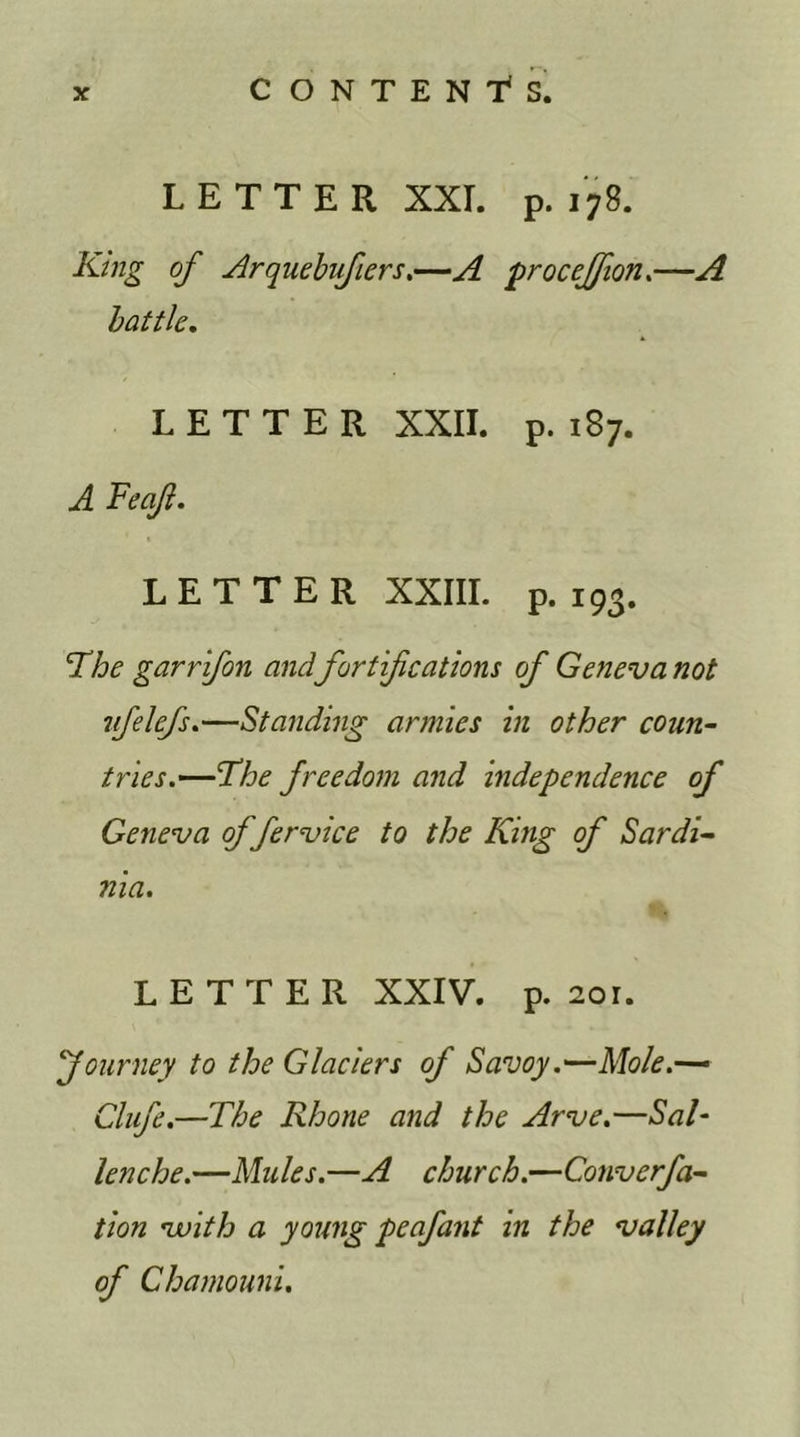 x CONTENTS.
LETTER XXI. p. 178.
King of Arquebuſiers.—A proceſſion.—A
battle.
LETTER XXII. p. 187.
A Feaſt.
LETTER XXIII. p. 193.
The garriſon and fortifications of Geneva not
uſeleſs.—Standing armies in other coun-
tries.—The freedom and independence of
Geneva of ſervice to the King of Sardi-
nia.
LETTER XXIV. p. 201.
Journey to the Glaciers of Savoy.—Mole.—
Cluſe.—The Rhone and the Arve.—Sal-
lenche.—Mules.—A church.—Converſa-
tion with a young peaſant in the valley
of Chamouni.